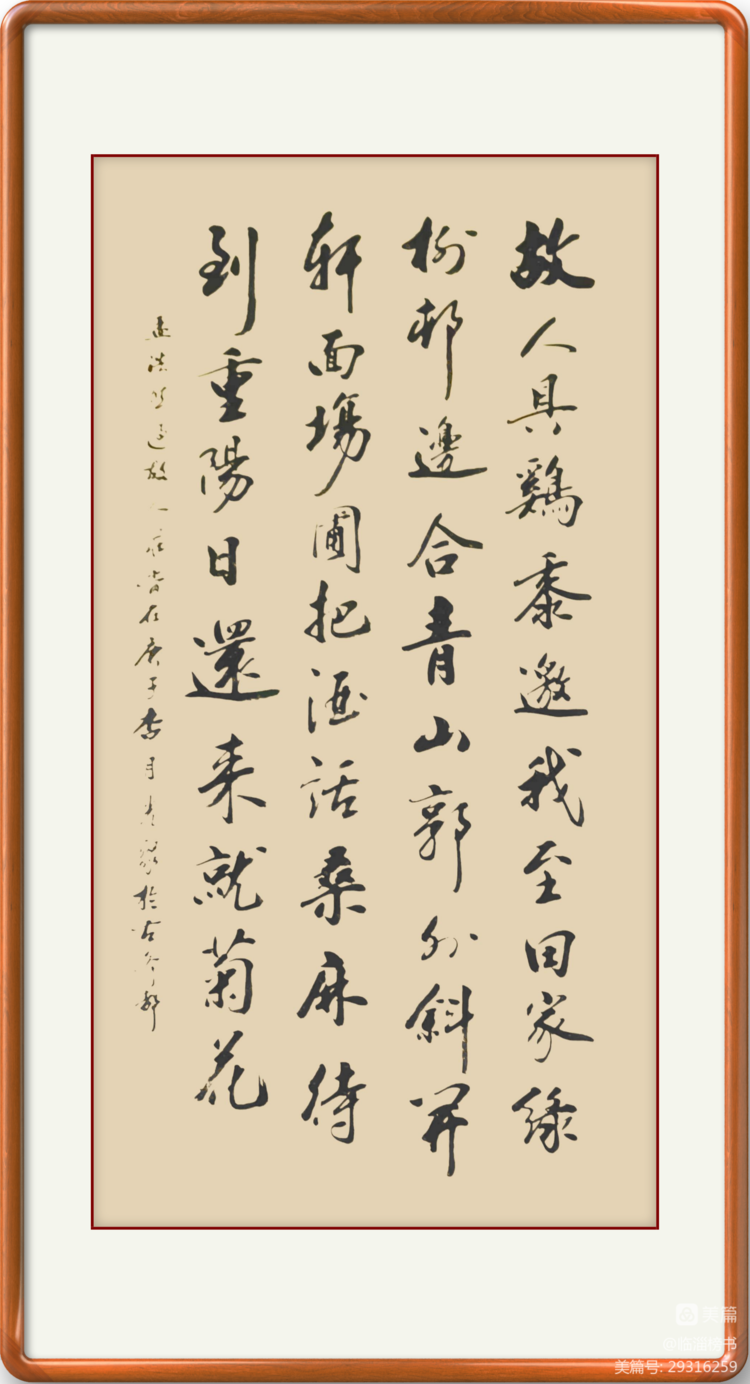 故人具鷄黍邀我至田家緑
树邨邊合青山郭外斜開
軒面塲圃把酒話桑麻待
到重陽日還来就菊花
孟浩然過故人庄時在庚子杏月於古都
美篇
美篇号: 29316259